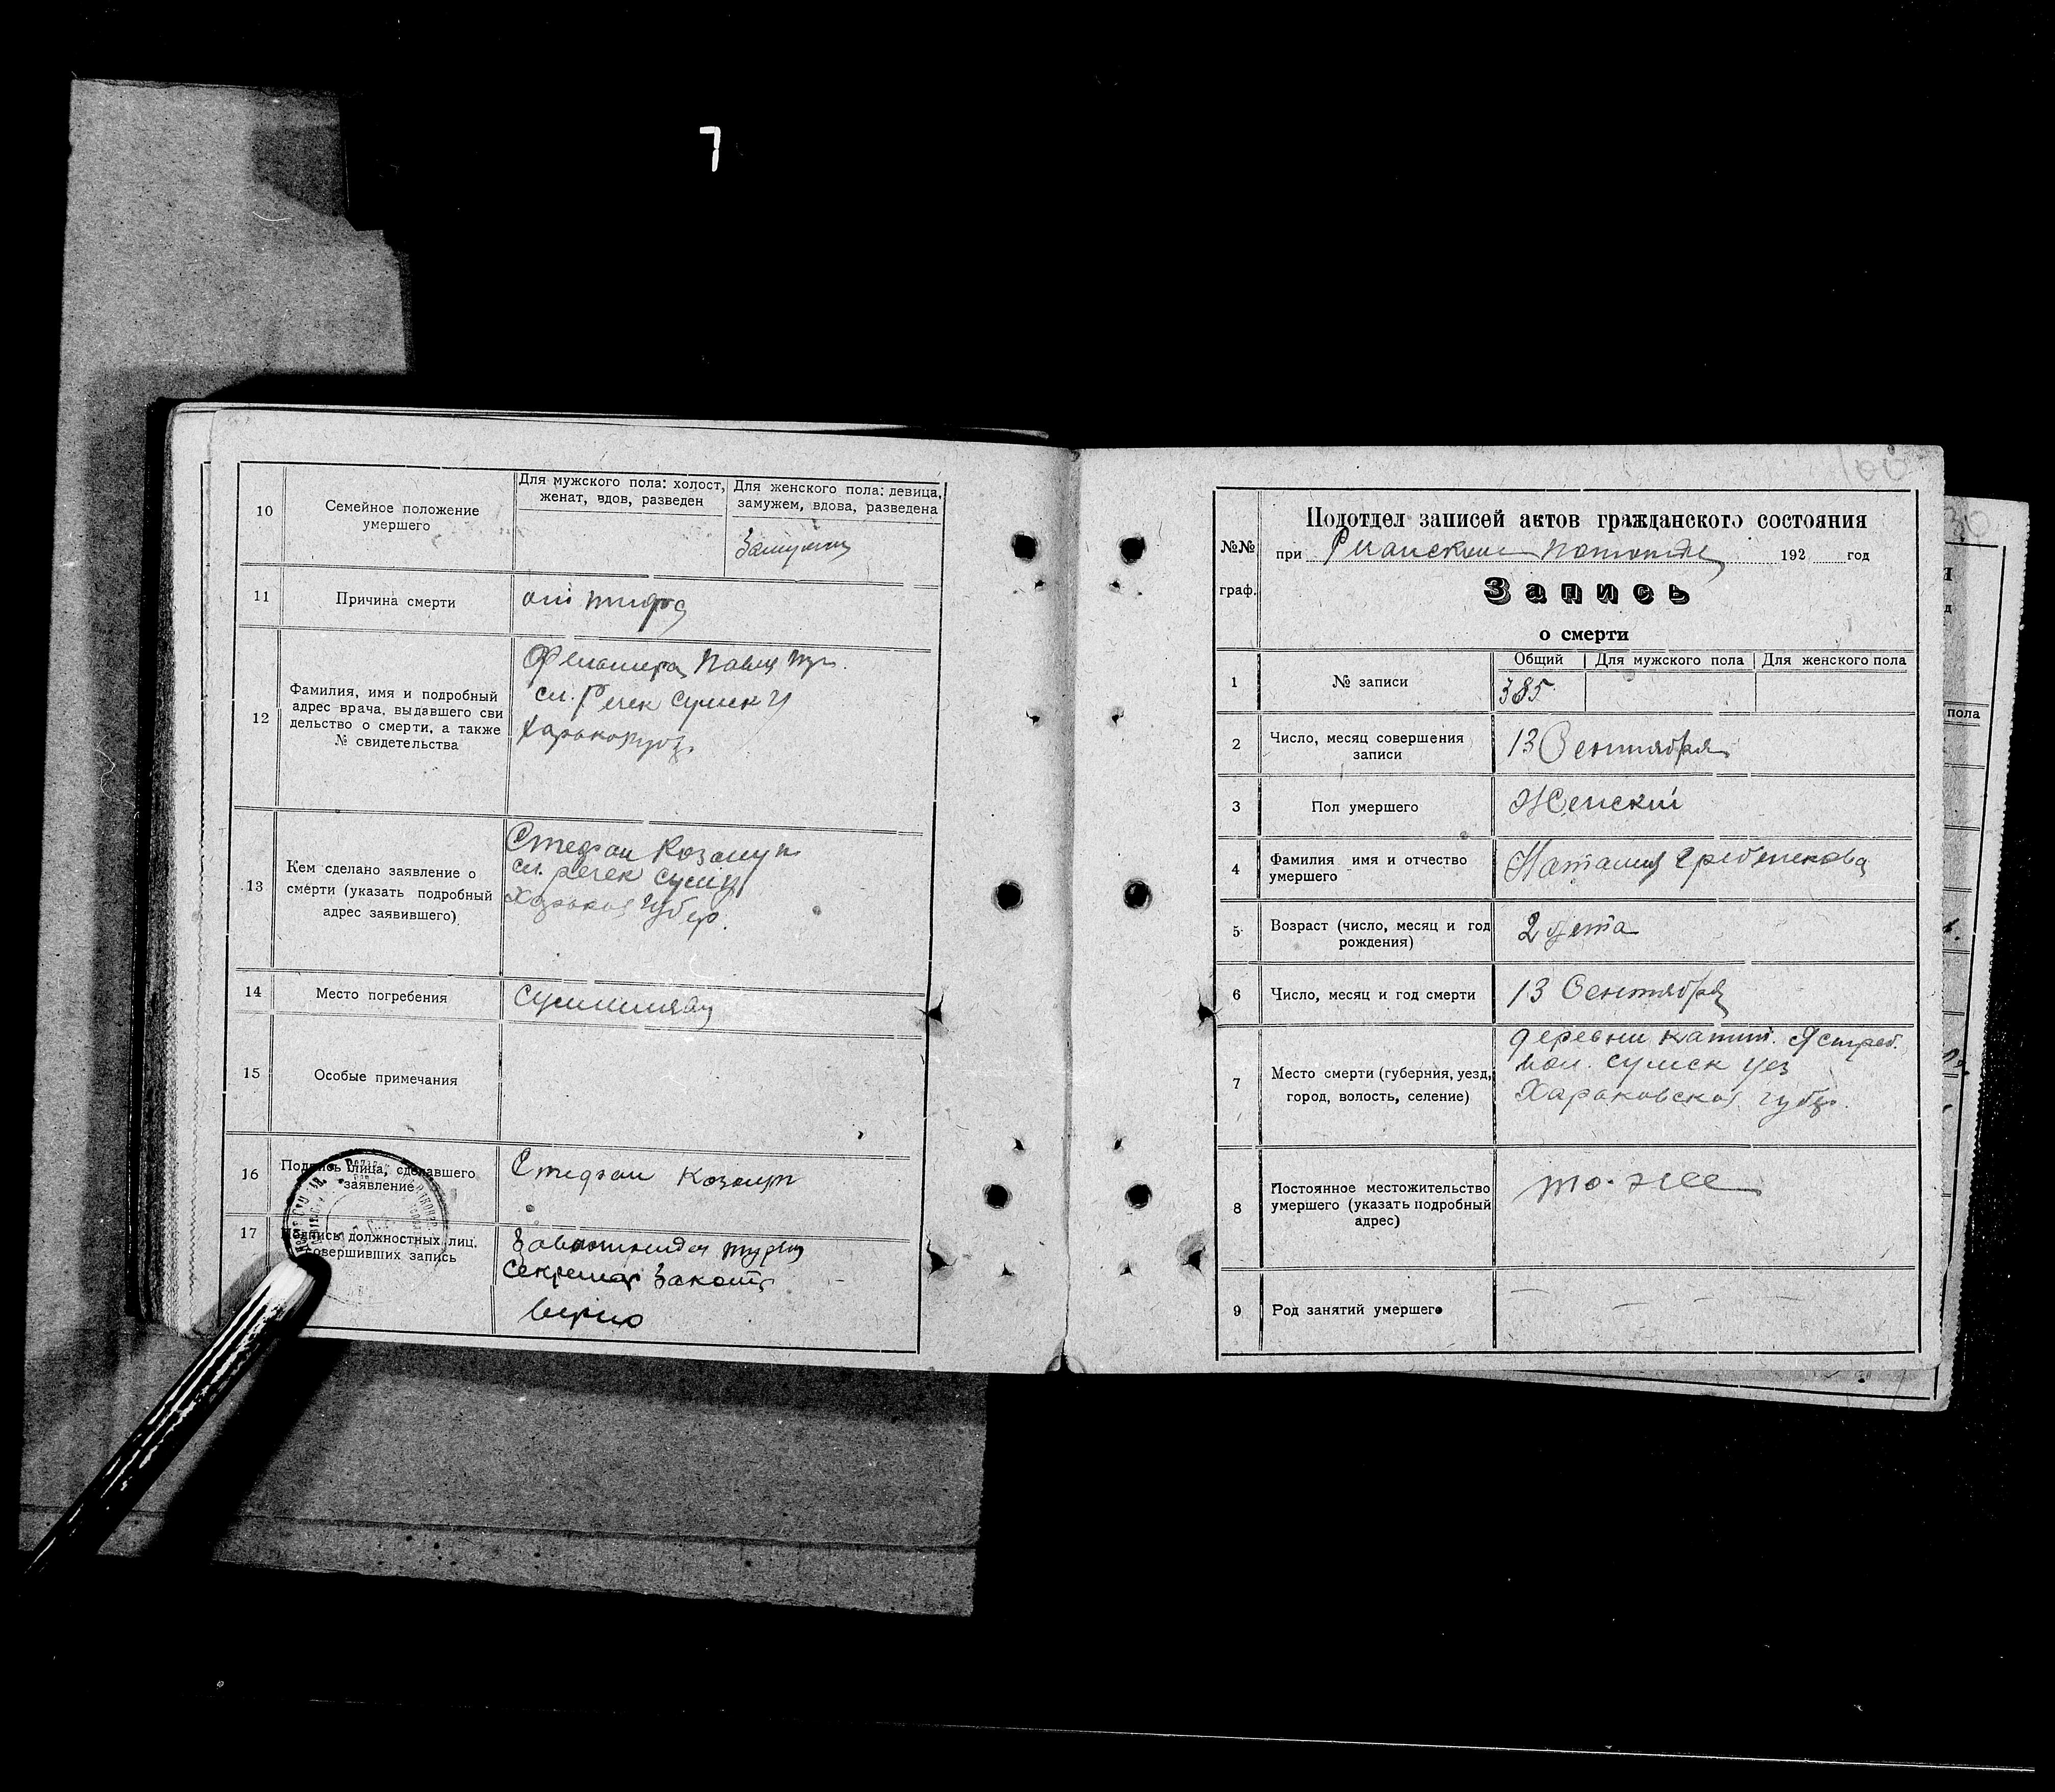 7
10
Семейное положение
умершего
Для мужского пола: холост,
женат, вдов, разведен
Для женского пола: девица,
замужем, вдова, разведена
11
Причина смерти
от тифа
12
Фамилия, имя и подробный
адрес врача, выдавшего сви
дельство о смерти, а также
№ свидетельства
сл. Речек Сумск у
13
Кем сделано заявление о
смерти (указать подробный
адрес заявившего)
Стефан Козолуп
сл. речек сумск
Харьков губер.
14
Место погребения
15
Особые примечания
16
Подпись лица, сделавшего
заявление
Стефан Козолуп
17
Подпись должностных лиц,
совершивших запись
Секретар
верно
100
№№
граф.
Подотдел записей актов гражданского состояния
при 192 год
Запись
о смерти
1
№ записи
Общий
Для мужского пола
Для женского пола
385
2
Число, месяц совершения
записи
13 Сентября
3
Пол умершего
Женский
4
Фамилия имя и отчество
умершего
Наталия Гребеникова
5
Возраст (число, месяц и год
рождения)
2 лета
6
Число, месяц и год смерти
13 Сентября
7
Место смерти (губерния, уезд,
город, волость, селение)
деревни Ястреб.
вол. сумск уез
Харьковской губер.
8
Постоянное местожительство
умершего (указать подробный
адрес)
то-же
9
Род занятий умершего
30
пола